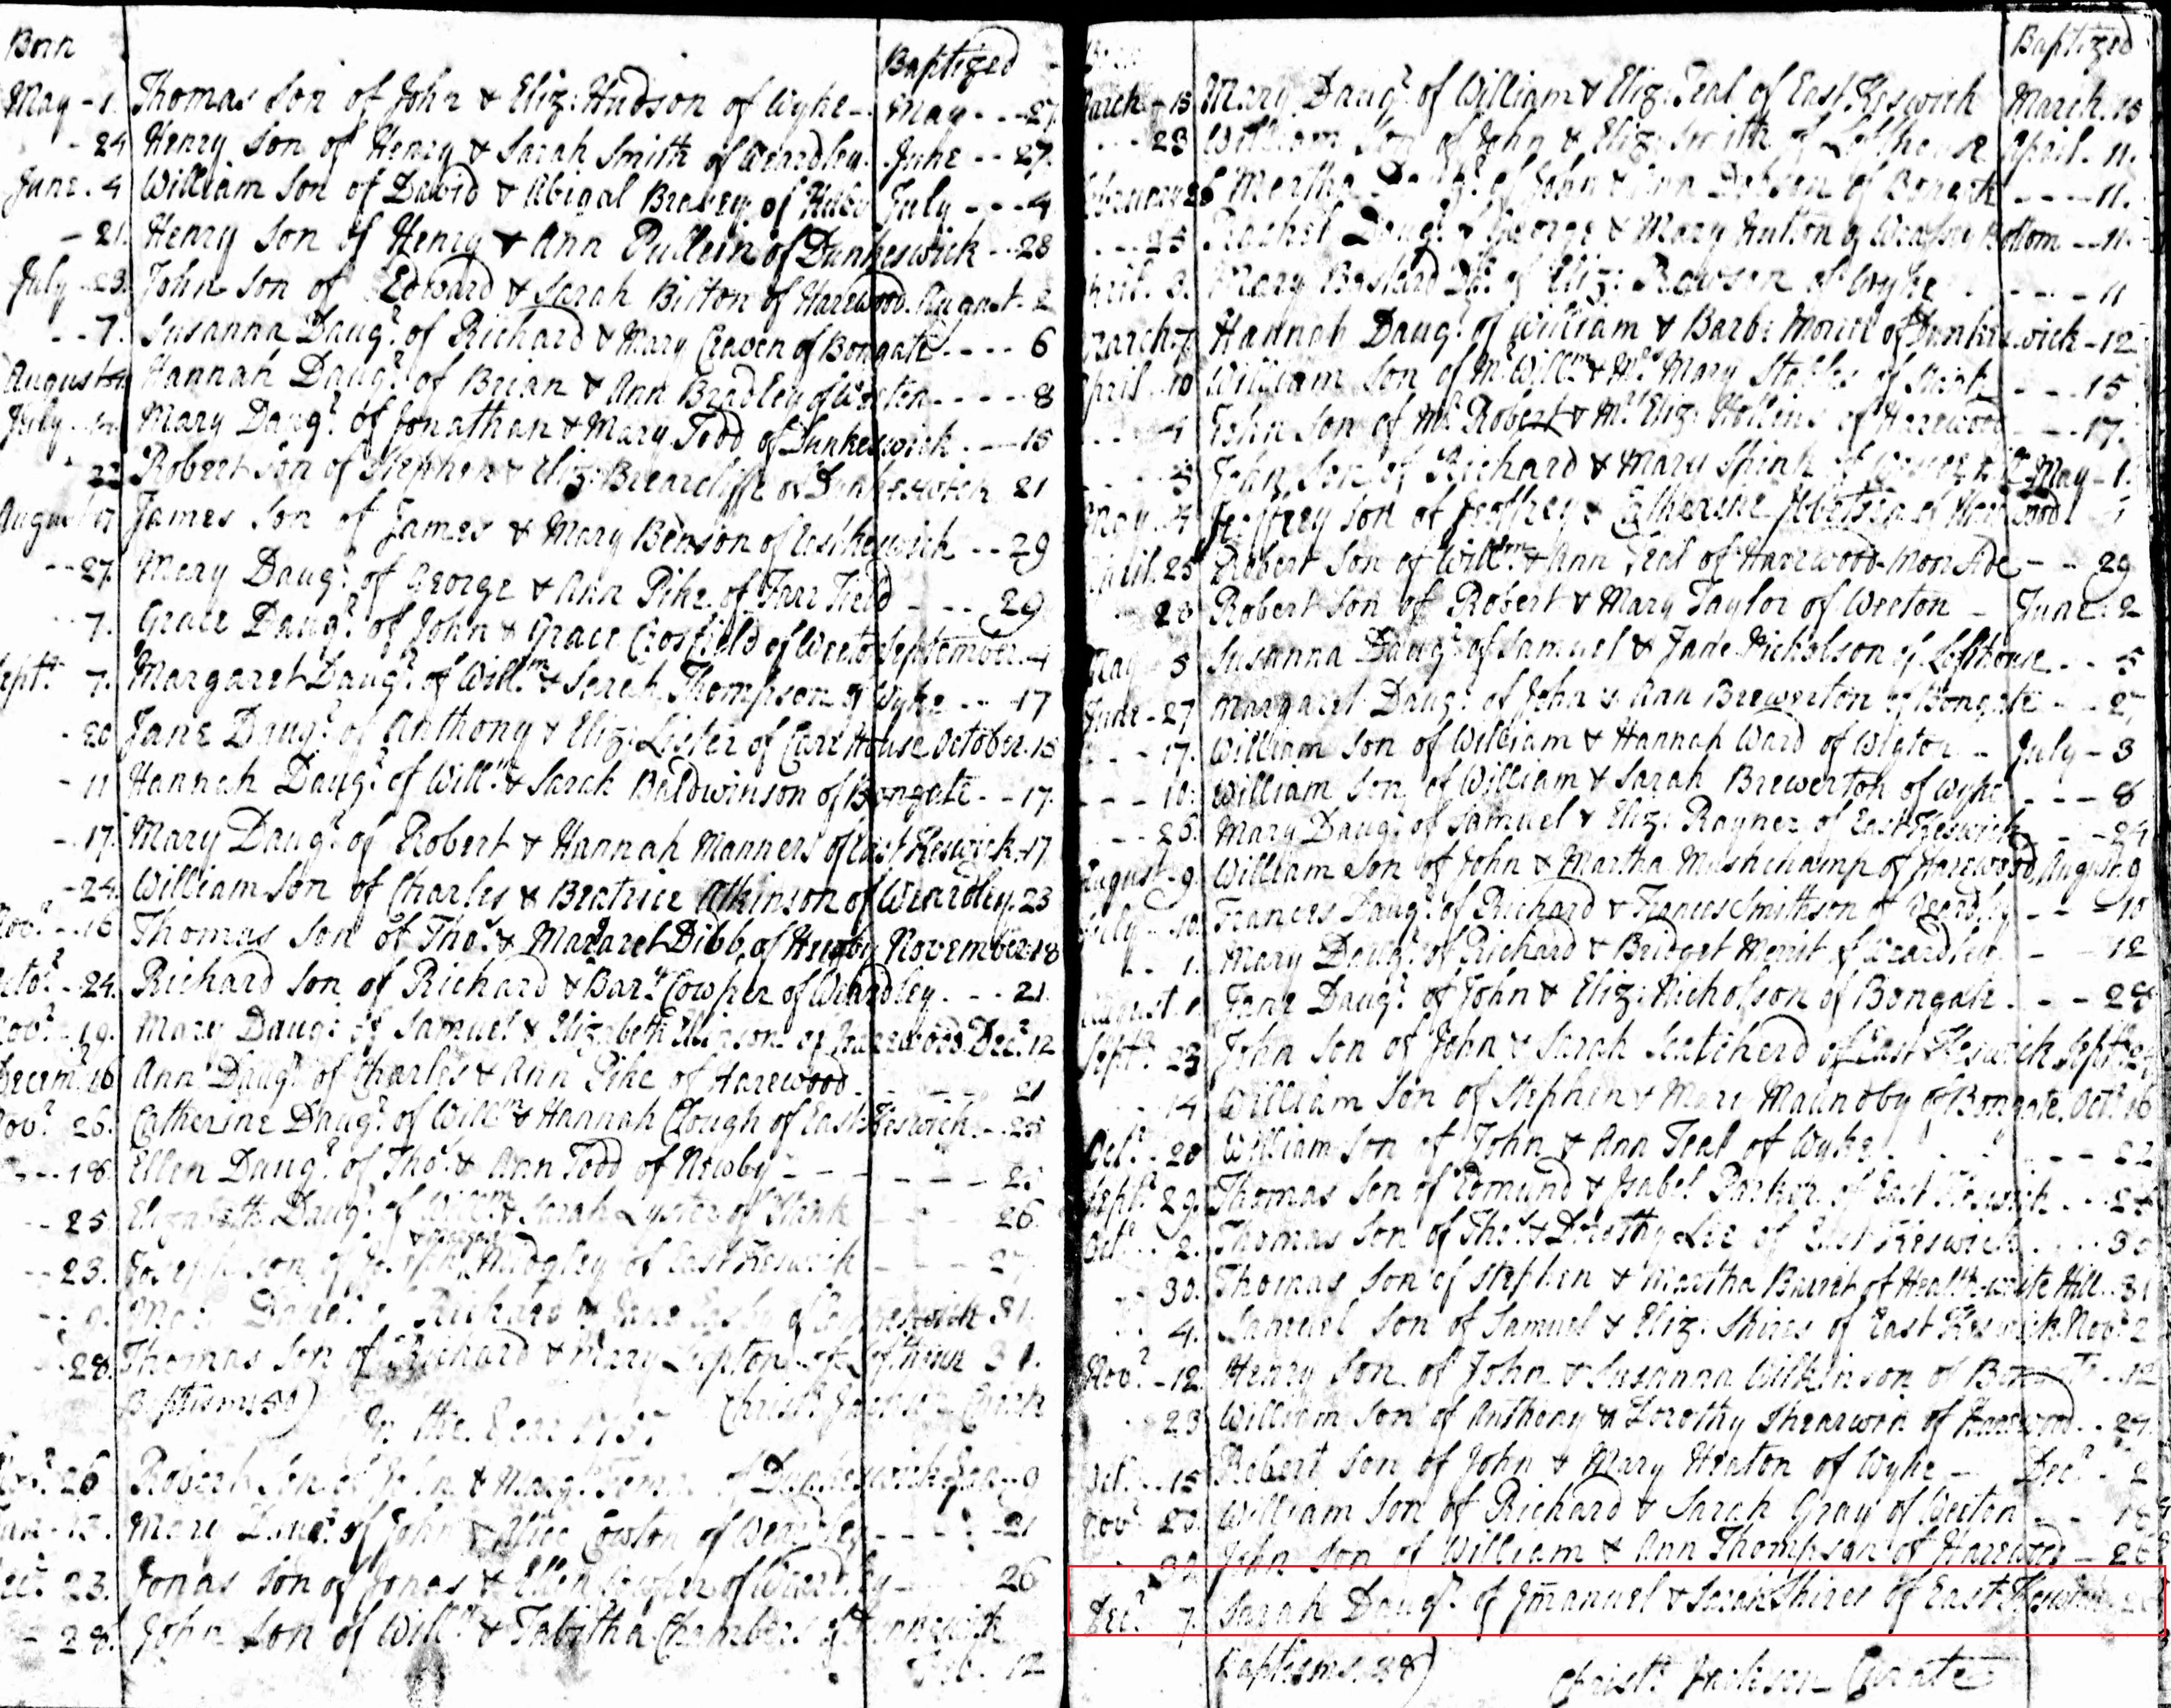 Born Baptized
May - 1. Thomas Son of John & Eliz: Hudson of Wyke - May - - - 27
- 24 Henry Son of Henry & Sarah Smith of Weardley. June - - 27.
June. 4 William Son of David & Abigal of July - - - 4
- 21. Henry Son of Henry & Ann Pullein of Dunkeswick - - 28
July 23. John Son of Edward & Sarah Bitton of Harewood. August. 2
- - 7. Susanna Daugr. of Richard & Mary Craven of Bongate - - - - 6
August Hannah Daugr. of Brian & Ann Bradley of Weeton - - - - - 8
July Mary Daugr. of Jonathan & Mary Todd of Dunkeswick. - - 15
22 Robert Son of Stephen & Eliz: Brearcliffe of Dunkeswick 21
August 17 James Son of James & Mary Benson of Eastkeswick - - 29
- - 27. Mary Daugr. of George & Ann Pike of Farr Field - - - 29
- - 7. Grace Daugr. of John & Grace Crosfield of Weeton September. 4
Septr. 7. Margaret Daugr. of Willm. & Sarah Thompson of Wyke - - - 17
- 20 Jane Daugr. of Anthony & Eliz: Lister of Carr House October. 15
- 11 Hannah Daugr. of Willm. & Sarah Baldwinson of Bongate - - 17.
- 17. Mary Daugr. of Robert & Hannah Manners of East Keswick. 17
- 24. William Son of Charles & Beatrice Atkinson of Weardley. 23
Novr. - 16 Thomas Son of Thos. & Margaret Dibb, of November 18
Octobr. - 24. Richard Son of Richard & Bary. Cowper of Weardley. - - - 21.
Novr. - 19. Mary Daugr. of Samuel & Elizabeth of Harewood Decr. 12
Decemr. 16 Ann Daugr. of Charles & Ann Pike of Harewood. - - - 21
Novr. 26. Catherine Daugr. of Willm. & Hannah Clough of East Keswick. - 25
- - 18. Ellen Daugr. of Thos. & Ann Todd of Newby - - - - - - -
- - 25. Elizabeth Daugr. of Willm. & Sarah Lyster of Stank - - 26.
- - 23. Joseph Son of Joseph Midgley of East Keswick - - - 27
Daugr. of Richard & Jane of 31.
28. Thomas Son of Richard & Mary Lupton of Lofthouse 31.
Baptisms Christr. Jackson Curate
In the Year 1737
26 Robert Son of John & Margt. of Dunkeswick Jan - 9
Mary Daugr. of John & Alice of Weardley - - - - 21
Decr. 23. Jonas Son of Jonas & Ellen of Weardley - - 26
- 28. John Son of Willm. & Tabitha Chambers of Dunkeswick
Feb. 12
Born Baptized
March - 15 Mary Daugr. of William & Eliz: Teal of East Keswick March. 15
- - - 23 William Son of John & Eliz: Smith of Lofthouse April. 11.
February Martha Daugr. of John & Ann Dobson of Bongate - - - - 11.
- - - 25 Rachel Daugr. of George & Mary of Bottom - - 11.
April. 3. Mary Bastard Dr. of Eliz: Rawson of Wyke - - - - 11
March 7. Hannah Daugr. of William & Barb: of Dunkeswick - 12
April. 10 William Son of Mr. Willm. & Mrs. Mary of Stank - - - 15
- - - 4 John Son of Mr. Robert & Mrs. Eliz: Hollins of Harewood - - 17.
John Son of Richard & Mary Spink of May - 1.
May. 4 Jeoffrey Son of Jeoffrey & Catherine of Harewood
April. 25 Robert Son of Willm. & Ann Teal of Harewood - - - 29
28 Robert Son of Robert & Mary Taylor of Weeton - June. 2
May 5 Susanna Daugr. of Samuel & Jane Nicholson of Lofthouse - - 5
June - 27 Margaret Daugr. of John & Ann Brewerton of Bongate - - - 27
- - - 17. William Son of William & Hannah Ward of Wigton - - July - 3
- - - 10. William Son of William & Sarah Brewerton of Wyke - - - 8
- - 26. Mary Daugr. of Samuel & Eliz: Rayner of East Keswick - - 24
August. 9 William Son of John & Martha Muschamp of Harewood August. 9
July - 10. Frances Daugr. of Richard & Frances Smithson of Weardley - - - 10
- - 1. Mary Daugr. of Richard & Bridget of Weardley - - 12
August Jane Daugr. of John & Eliz: Nicholson of Bongate. - - 28
Septr. 23 John Son of John & Sarah Scatcherd of East Keswick Septr.
14 William Son of Stephen & Mary Maunoby of Bongate. Octr. 16
Octr. 20 William Son of John & Ann Teal of Wyke. - - - 22
Septr. 29. Thomas Son of Edmund & Isabel Parker of East Keswick. - -
Octr. 2. Thomas Son of Thos. & Dorothy Lee of East Keswick. - - - 30
30. Thomas Son of Stephen & Martha Barret of Hill. 31
4. Samuel Son of Samuel & Eliz: Shires of East Keswick. Novr. 2
Novr. - 12. Henry Son of John & Susanna Wilkinson of Bongate - 12
23 William Son of Anthony & Dorothy Shearwin of Harewood. - 27.
Oct. 15 Robert Son of John & Mary Heaton of Wyke - Decr. - 2
Novr. William Son of Richard & Sarah Gray of Weeton - - 18
John Son of William & Ann Thompson of Harewood - 26
Decr. 7. Sarah Daugr. of Jmanuel & Sarah Shires of East Keswick
Baptisms. 38) Christr. Jackson - Curate